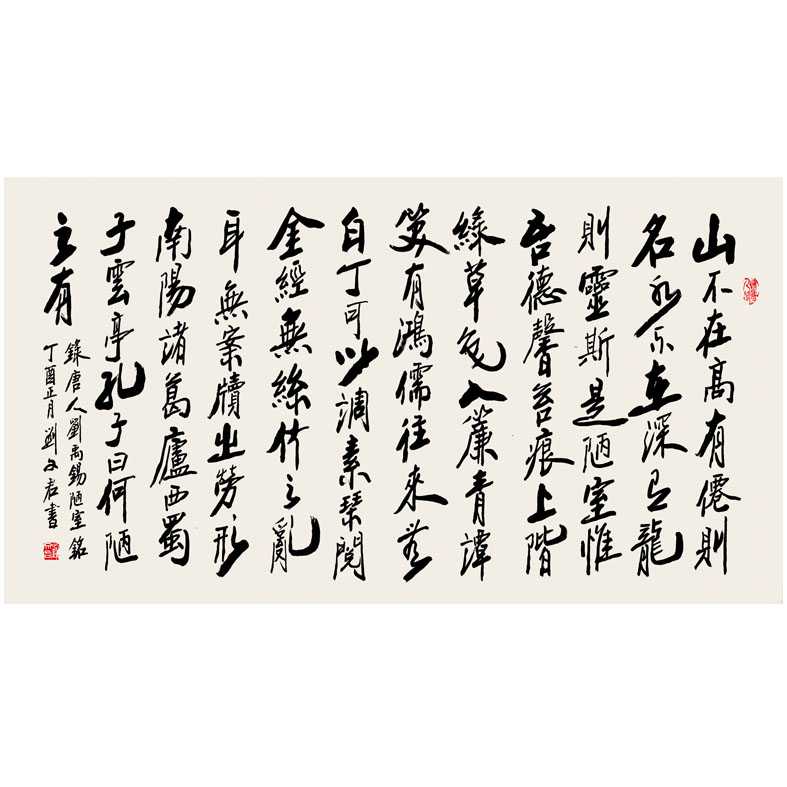 山不在高有僊則
名水不在深有龍
則靈斯是陋室惟
吾德馨苔痕上階
綠草色入簾青譚
笑有鴻儒往來無
白丁可以調素琴閱
金經無絲竹之亂
耳無案牘之勞形
南陽諸葛廬西蜀
子雲亭孔子曰何陋
之有
錄唐人劉禹錫陋室銘
丁酉正月劉文君書